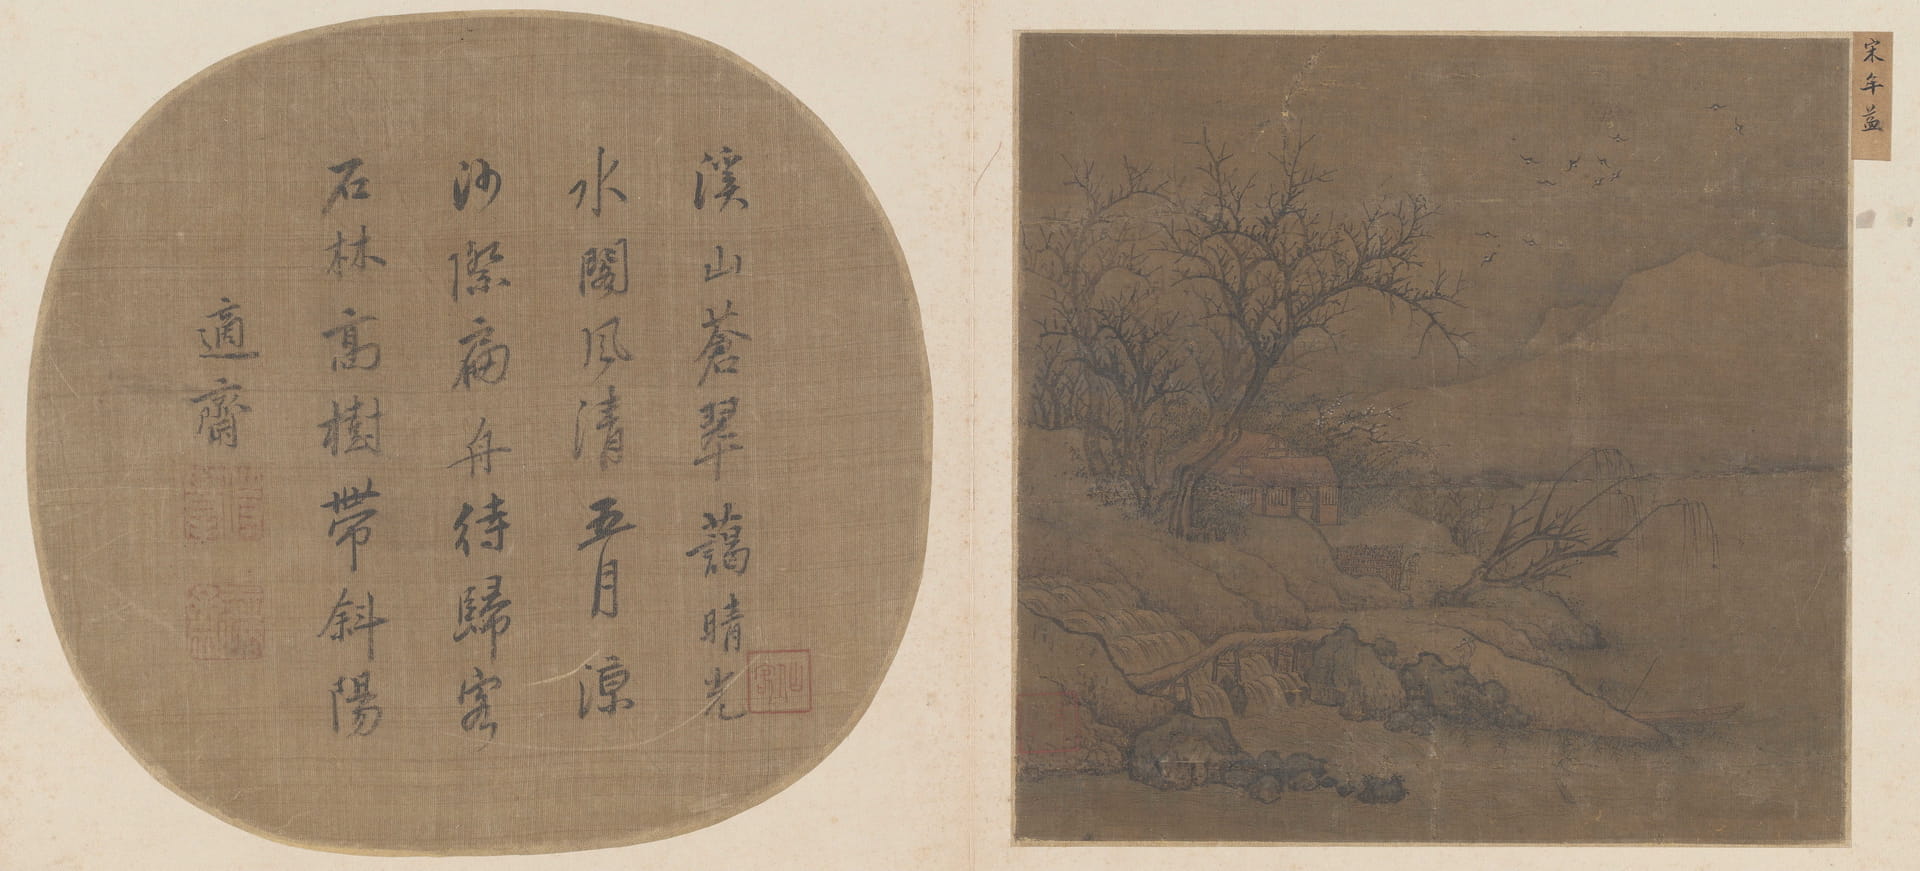 宋牟益
溪山蒼翠藹晴光
水閣風清五月涼
沙際扁舟待歸客
石林高樹帶斜陽
適齋